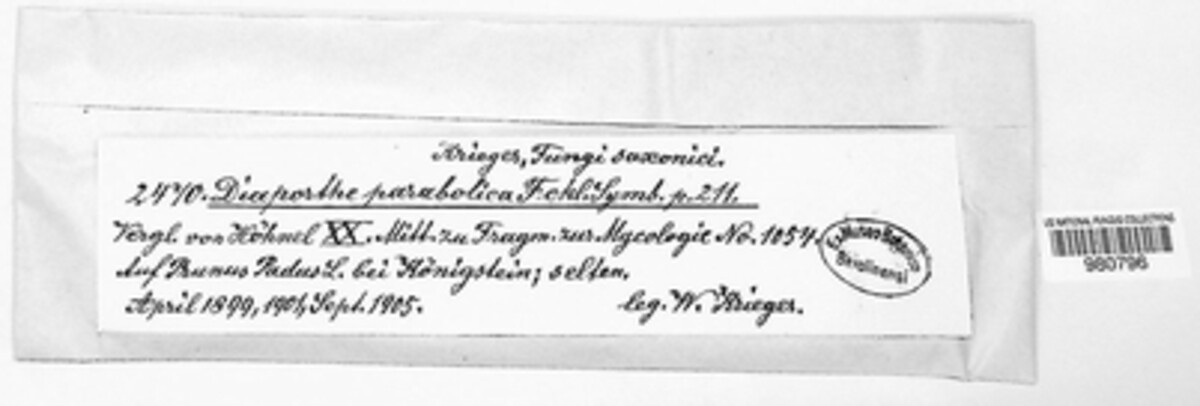 Krieger, Fungi saxonici.
2470. Diaporthe parabolica Fckl. Symb. p. 211.
Vergl. von Höhnel XX. Mitt. zu Fragm. zur Mycologie No. 1054.
Auf Prunus Padus L. bei Königstein; selten.
April 1899, 1901, Sept. 1905.
leg. W. Krieger.
Ex Museo Botanico
Berolinensi
US NATIONAL FUNGUS COLLECTIONS
980796